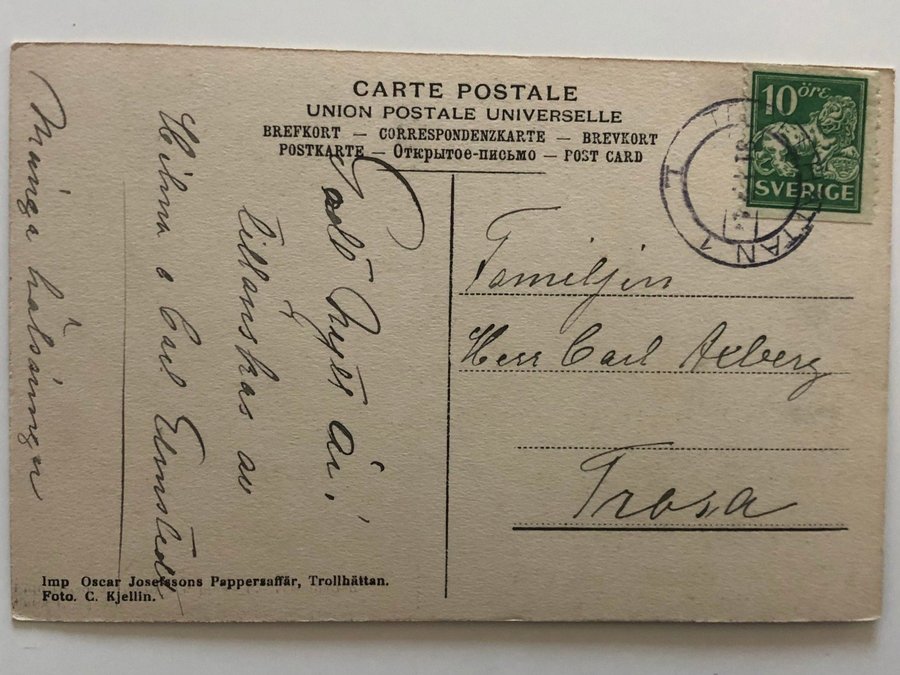 CARTE POSTALE
UNION POSTALE UNIVERSELLE
BREFKORT — CORRESPONDENZKARTE — BREVKORT
POSTKARTE — Открытое-письмо — POST CARD
10 ÖRE
SVERIGE
TTAN 1
Familjen
Herr Carl Axberg
Trosa
Godt Nytt år!
tillönskas av
Hilma o Carl Elmstedt
Många hälsningar
Imp Oscar Josefssons Pappersaffär, Trollhättan.
Foto. C. Kjellin.